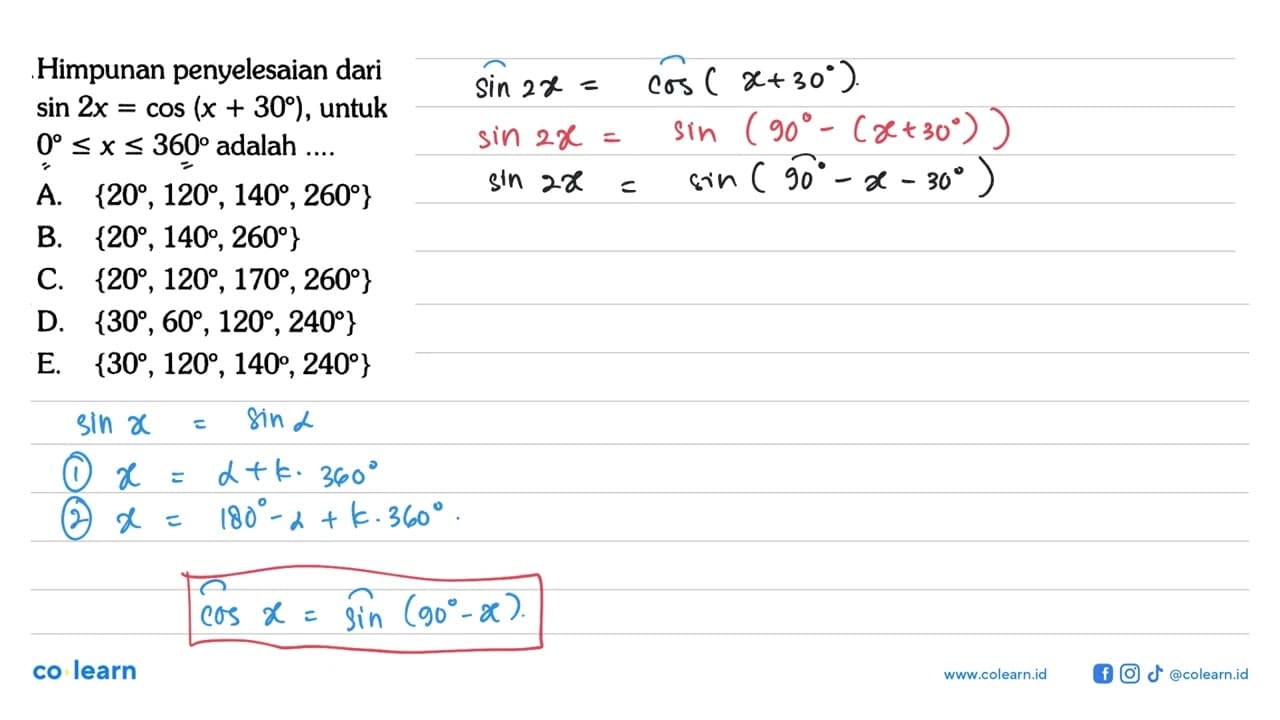 Himpunan penyelesaian dari
sin 2x = cos (x + 30°), untuk
0° ≤ x ≤ 360° adalah ....
A. {20°, 120°, 140°, 260°}
B. {20°, 140°, 260°}
C. {20°, 120°, 170°, 260°}
D. {30°, 60°, 120°, 240°}
E. {30°, 120°, 140°, 240°}
sin 2x = cos ( x + 30° ).
sin 2x = sin ( 90° - (x + 30° ) )
sin 2x = sin ( 90° - x - 30° )
sin x = sin α
① x = α + k. 360°
② x = 180° - α + k. 360° .
cos x = sin (90° - x ).
co learn
www.colearn.id
@colearn.id